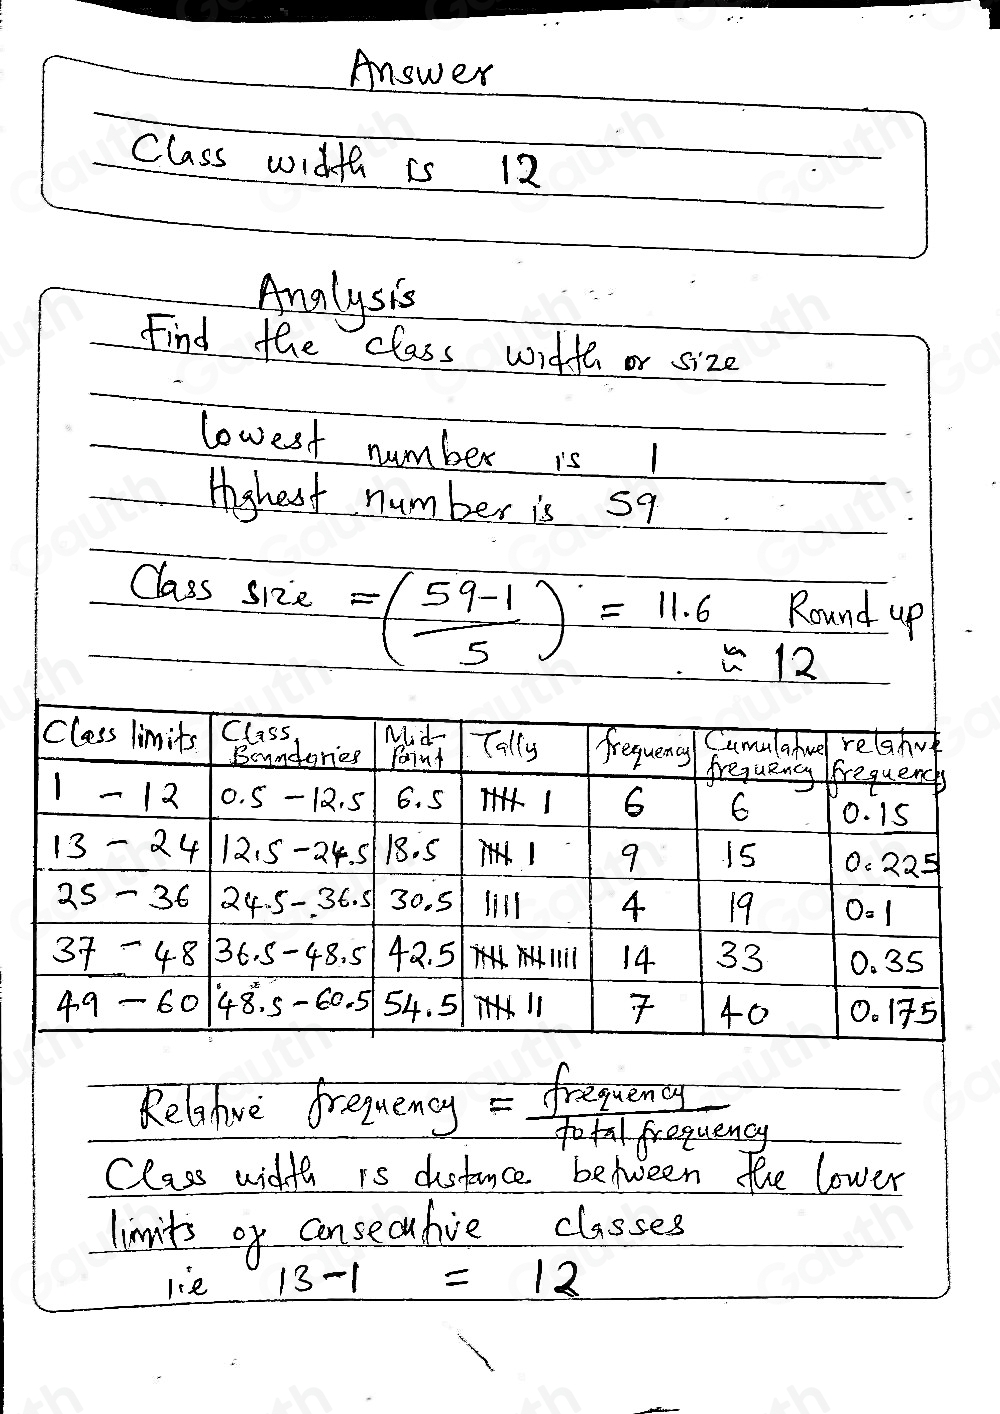 Answer
Class width is 12
Analysis
Find the class width or size
lowest number is 1
Highest number is 59
Class size = (59-1 / 5) = 11.6 Round up
≈ 12
Class limits Class Boundaries Mid-Point Tally frequency Cumulative frequency relative frequency
1 - 12 0.5 - 12.5 6.5 |||| | 6 6 0.15
13 - 24 12.5 - 24.5 18.5 |||| | 9 15 0.225
25 - 36 24.5 - 36.5 30.5 |||| 4 19 0.1
37 - 48 36.5 - 48.5 42.5 |||| |||| |||| 14 33 0.35
49 - 60 48.5 - 60.5 54.5 |||| || 7 40 0.175
Relative frequency = frequency / total frequency
Class width is distance between the lower
limits of consecutive classes
i.e 13-1 = 12